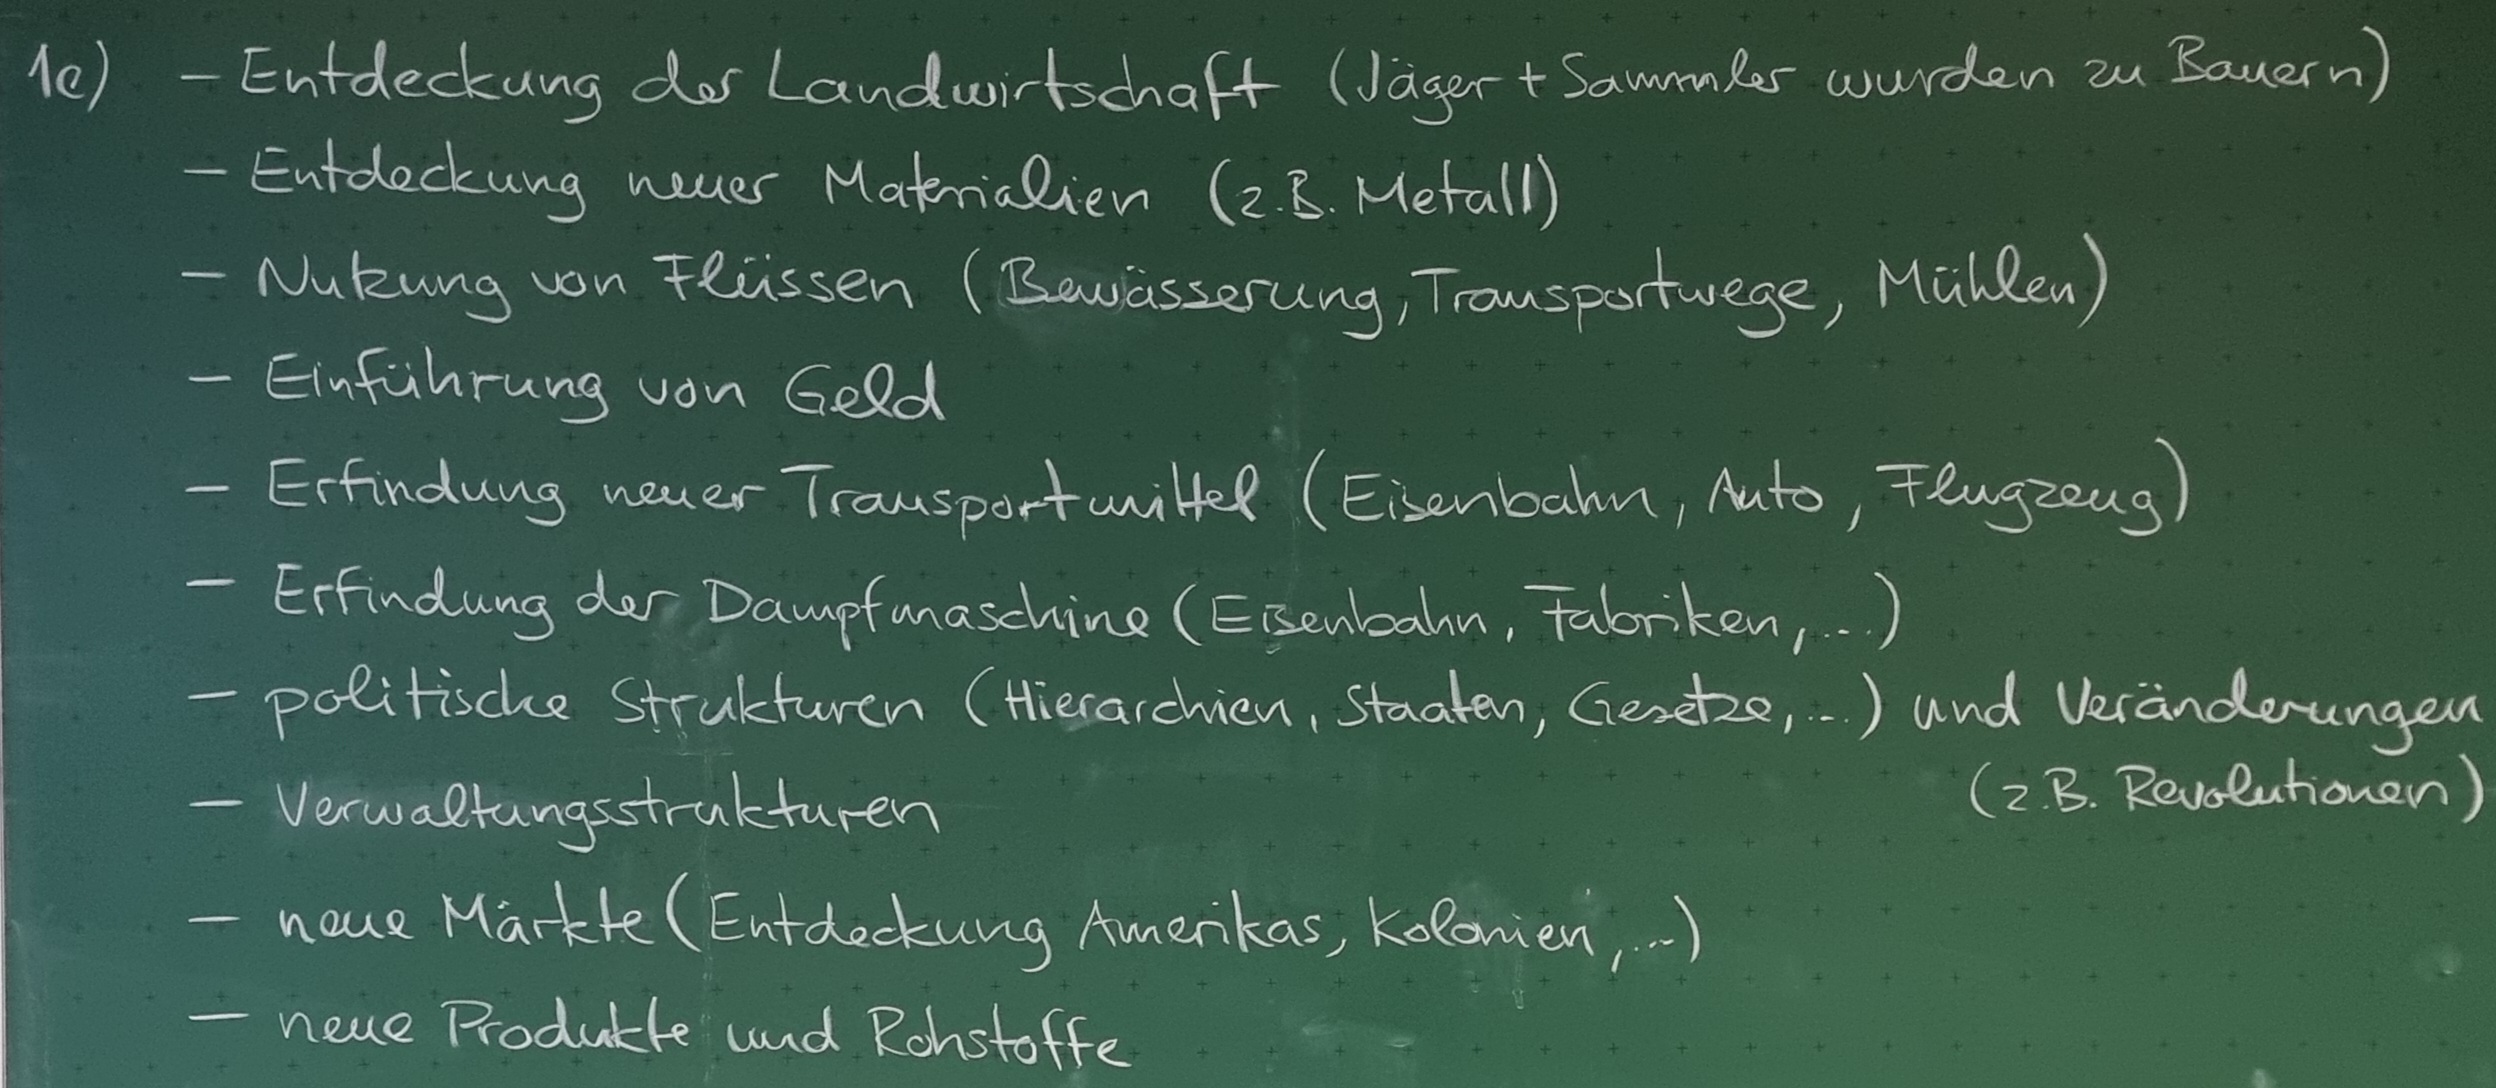 1c) – Entdeckung der Landwirtschaft (Jäger + Sammler wurden zu Bauern)
– Entdeckung neuer Materialien (z.B. Metall)
– Nutzung von Flüssen (Bewässerung, Transportwege, Mühlen)
– Einführung von Geld
– Erfindung neuer Transportmittel (Eisenbahn, Auto, Flugzeug)
– Erfindung der Dampfmaschine (Eisenbahn, Fabriken, ...)
– politische Strukturen (Hierarchien, Staaten, Gesetze, ...) und Veränderungen
(z.B. Revolutionen)
– Verwaltungsstrukturen
– neue Märkte (Entdeckung Amerikas, Kolonien, ...)
– neue Produkte und Rohstoffe